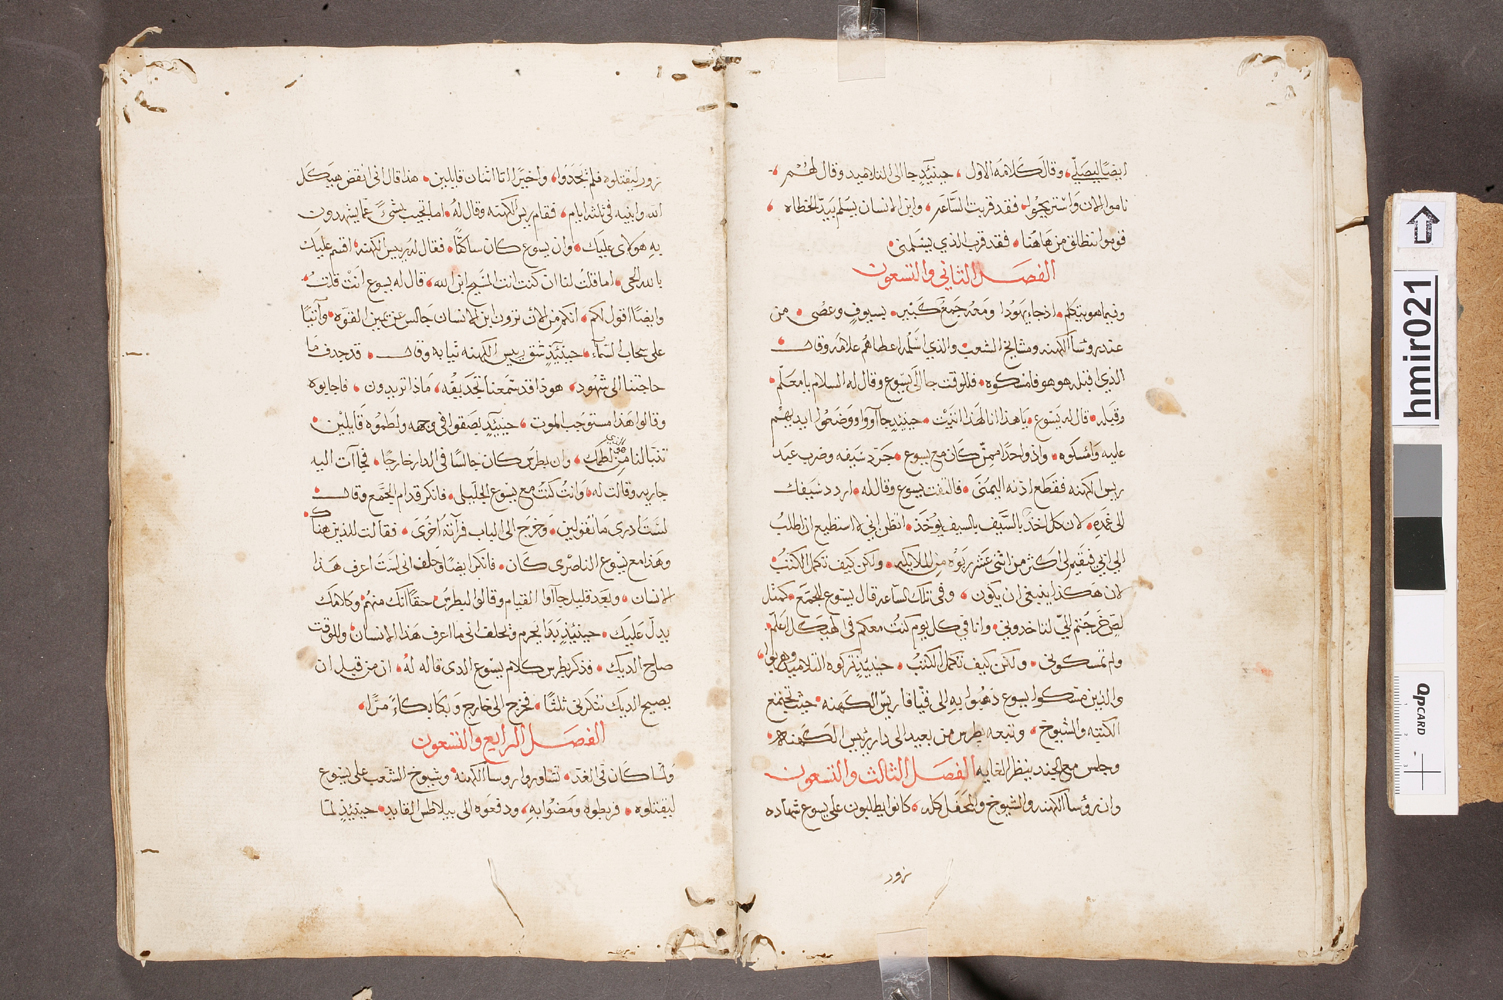 ايضًا ليصلّي، وقال كلامه الاول، حينئيذٍ جا الى التلاميد وقال لهُم
ناموا الان واستريحُوا، فقد قربت السّاعَه، وابن الانسان يسَلم بيدّ الخطاه
قوموا ننطلق من هَاهُنا، فقد قرب الذي يسَلمني
الفصَل التاني والتسعون
وفيما هو يتكلم، اذ جا يهُودا ومَعَه جَمعُ كَتير، بسيوفٍ وعُصي، من
عند روسَا الكهنه ومشايخ الشعب، والذي اسلمه اعطاهُم علامَه وقال
الذي اقبله هو هو فامسكوه، فللوقت جا الى يسُوع وقال له السلام يا معَلم
وقبله، قال له يسَوع، يا هدا الهَذا اتيت، حينيذٍ جاآوا ووضعُوا ايديهُم
عليه وامسكوه، واذ واحدًا ممن كَان مع يسوع، جَرّد سَيفه وضرب عبد
ريس الكهنه فقطَع اذنه اليُمنَى، فالتفت يسوع وقال له، اردد سَيفك
الى غمدِه، لان كل من اخذ بالسَّيف بالسيف يوخَذ، اتظن اني لا استطيع ان اطلبُ
الى ابي فيقيم لي اكتر من اتنى عشر ربوَه من الملايكه، ولكن كيف تكمل الكتبُ
لان هكذا ينبغي ان يكون، وفي تلك السّاعه قال يسَوع للجمَع، كمتل
لصّ خرجتم اليّ لتاخدوني، وانا في كل يوم كنتُ معكم في الهيكل اعَلم
ولم تمسكوني، ولكن كيف تكمل الكتبُ، حينيئذٍ تركوه التلاميد وهربوا
والذين مسَكوا يسوع ذهبُوا بهِ الى قيافا ريس الكَهنه، حيت تجتمَع
الكتبه والشيوخ، وتبعه بطرس من بعيد الى دار رئيس الكَهنه
وجلس مع الجند ينظر الغايه الفصَل الثالث والتسعون
وان روسَا الكهنه والشيوخ والمحفَل كله، كانوا يطلبون على يسوع شهاده
زور
زور ليقتلوه فلم يَجَدوا، واخيرًا اتا اتنان قايلين، هذا قال اني انقض هيكَل
الله وابنيه في تلته ايام، فقام ريس الكهنه وقال لهُ، اما تجيب بشيٍ عَما يشهدون
بهِ هولاي عليك، وان يسوع كان ساكتًا، فقال له رييس الكهنه اقسم عليك
بالله الحي، اما قلت لنا ان كنت انت المسَيح ابن الله، قال له يسوع انتْ قلتَ
وايضًا اقول لكم، انكم من الان ترون ابن الانسان جالس عن يمين القوه، وآتيًا
على سحاب السماء، حينيئذٍ شق رييس الكهنه تيابه وقال، قد جدف ما
حاجتنا الى شهُود، هوذا قد سَمعنا تجديفه، ماذا تريدون، فاجابوه
وقالوا هَذا مستوجب الموت، حينيئذٍ بصَقوا في وجهه ولطمُوه قايلين
تنبّا لنا من لطمك، وان بطرس كان جالسًا في الدار خارجًا، فجاآت اليه
جاريه وقالت له، وَانتَ كنتَ مع يسَوع الجليلي، فانكر قدام الجَمَع وقال
لست ادري مَا تقولين، وخرج الى الباب فرآته اخرى، فقالت للذين هناك
وهَذا مع يسَوع الناصَرى كَان، فانكر ايضًا وحَلف اني لسَت اعرف هَذا
الانسان، وبعد قليل جاآوا القيام وقالوا لبطرس، حقًا انك منهُم، وكلامك
يدِلّ عَليك، حينيئذٍ بدَا يحَرم ويحلف اني ما اعرف هَذا الانسان، وللوقت
صَاح الديك، فذكر بطرس كلام يسَوع الذى قاله لهُ، ان من قبل ان
يصيح الديك تنكرني ثلتًا، فخرج الى خارج وبكا بكاءً مرًا
الفصَل الرابع والتسعون
ولما كَان في الغدَ، تشاوروا روسا الكهنه وشيوخ الشعب على يسَوع
ليقتلوه، فربطوه ومَضوا بهِ، ودفعوَه الى بيلاطس القايد، حينيئذٍ لما